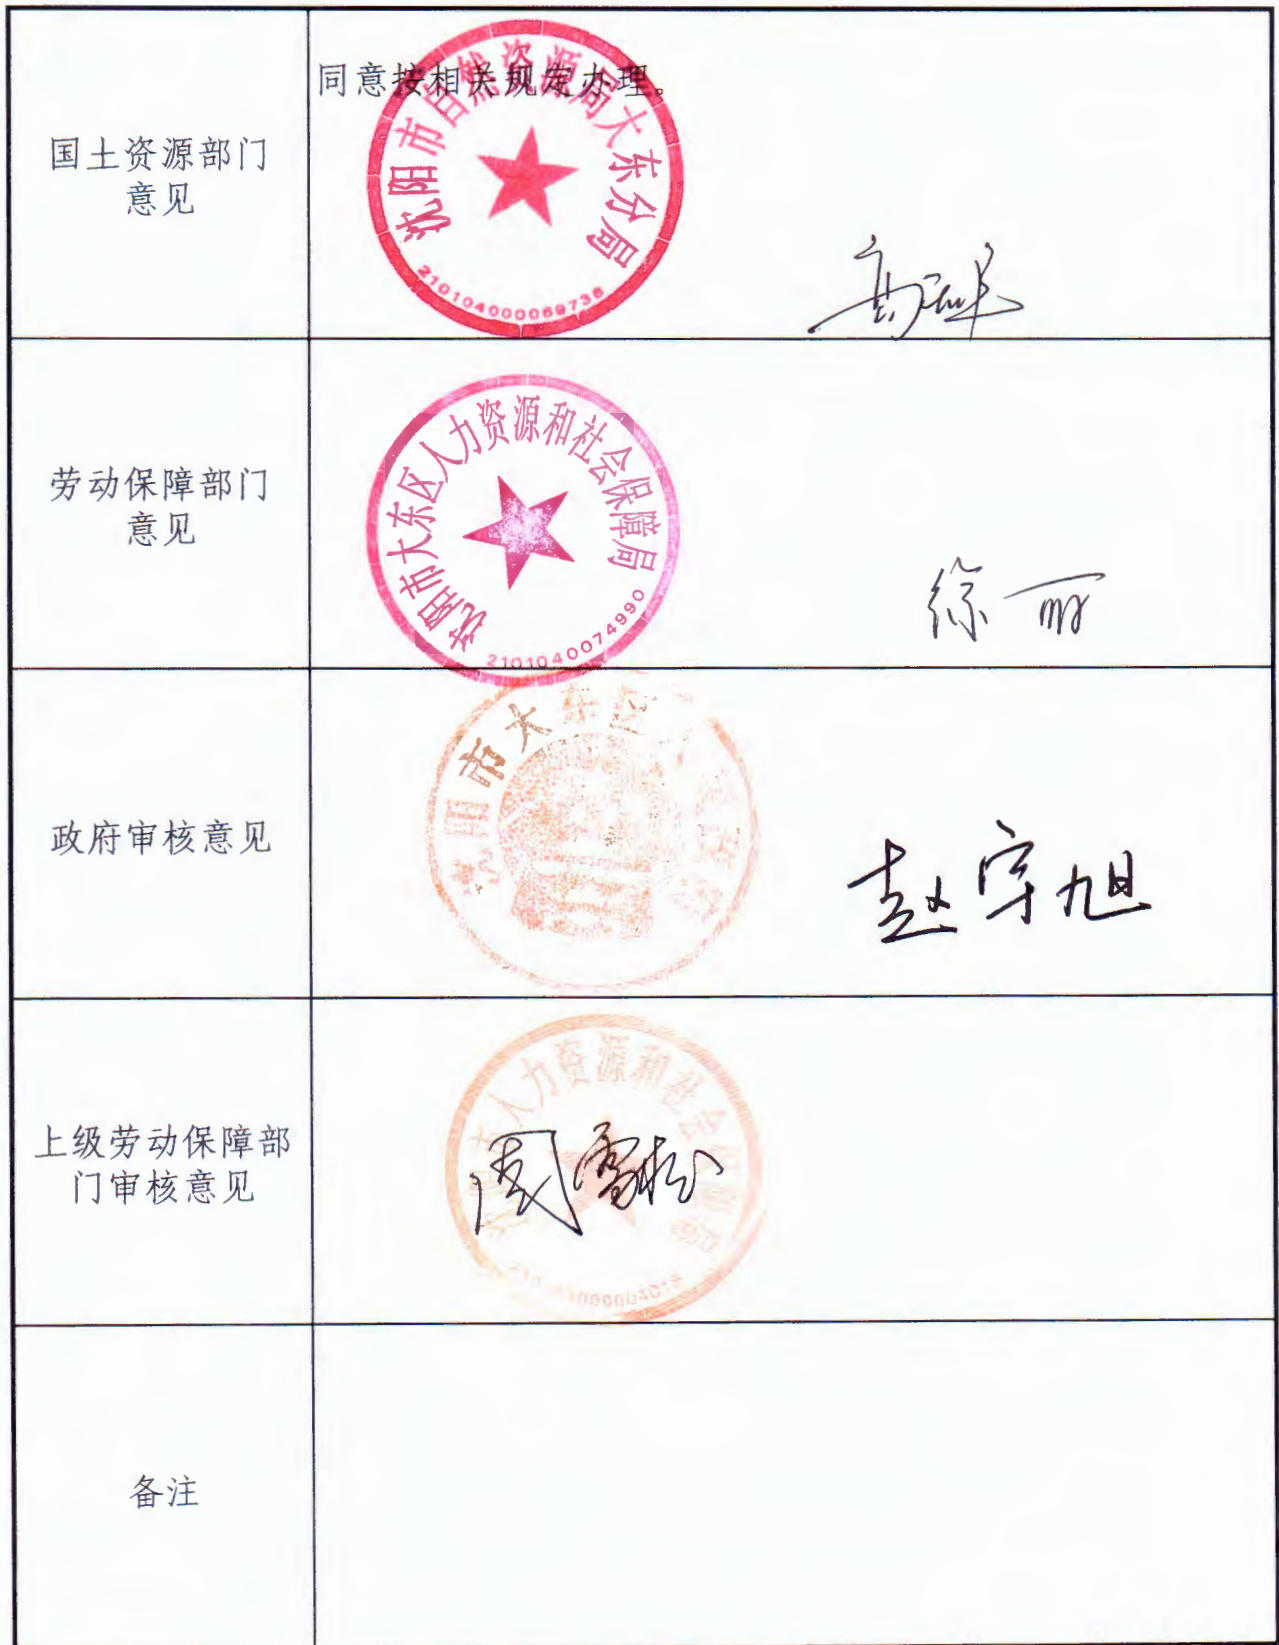 国土资源部门
意见
同意按相关规定办理。
沈阳市自然资源局大东分局
210104000069736
劳动保障部门
意见
沈阳市大东区人力资源和社会保障局
2101040074990
徐丽
政府审核意见
沈阳市大东区
赵宇旭
上级劳动保障部
门审核意见
人力资源和社会
周雪松
备注